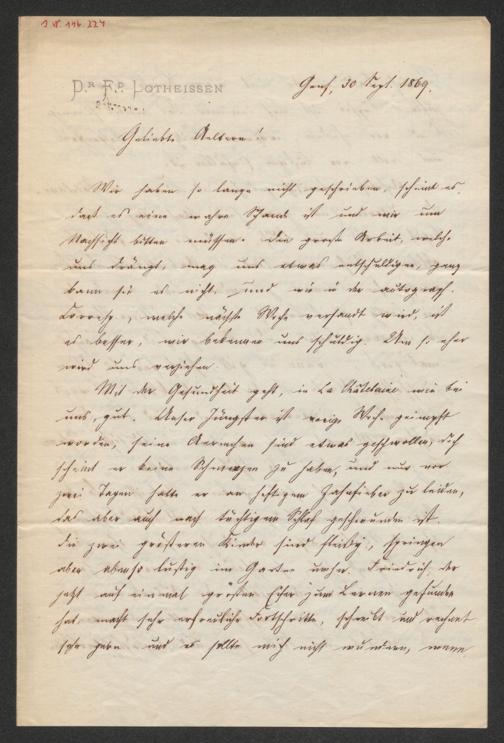 DR. F.P. LOTHEISSEN
Genf, 30 Sept. 1869.
Geliebte Aeltern!
Wir haben so lange nicht geschrieben, scheint es,
daß es eine wahre Schande ist und wir um
Nachsicht bitten müssen. Die große Arbeit, welche
uns drängt, mag uns etwas entschuldigen, ganz
kann sie es nicht, und wie in der autograph.
Corresp., welche nächste Woche versandt wird, ist
es besser, wir bekennen uns schuldig. Um so eher
wird uns verziehen.
Mit der Gesundheit geht, in La Châtelaine wie bei
uns, gut. Unser Jüngster ist vorige Woche geimpft
worden, seine Aermchen sind etwas geschwollen, doch
scheint er keine Schmerzen zu haben, und nur vor
zwei Tagen hatte er an heftigem Zahnfieber zu leiden,
das aber auch nach tüchtigem Schlaf geschwunden ist.
Die zwei größeren Kinder sind fleißig, springen
aber ebenso lustig im Garten umher. Friedrich, der
jetzt auf einmal großen Eifer zum Lernen gefunden
hat, macht sehr erfreuliche Fortschritte, schreibt und rechnet
sehr gern und es sollte mich nicht wundern, wenn